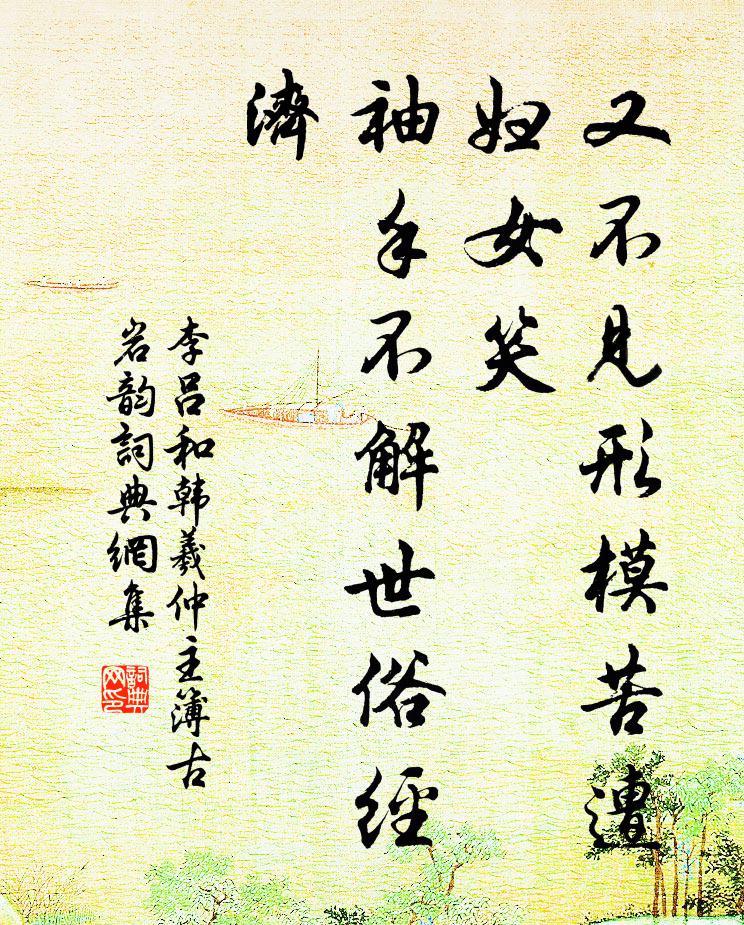 又不見形模苦遭
婦女笑
袖手不解世俗經
濟
李吕和韩羲仲主簿古
岩韵詞典網集
詞典
网印